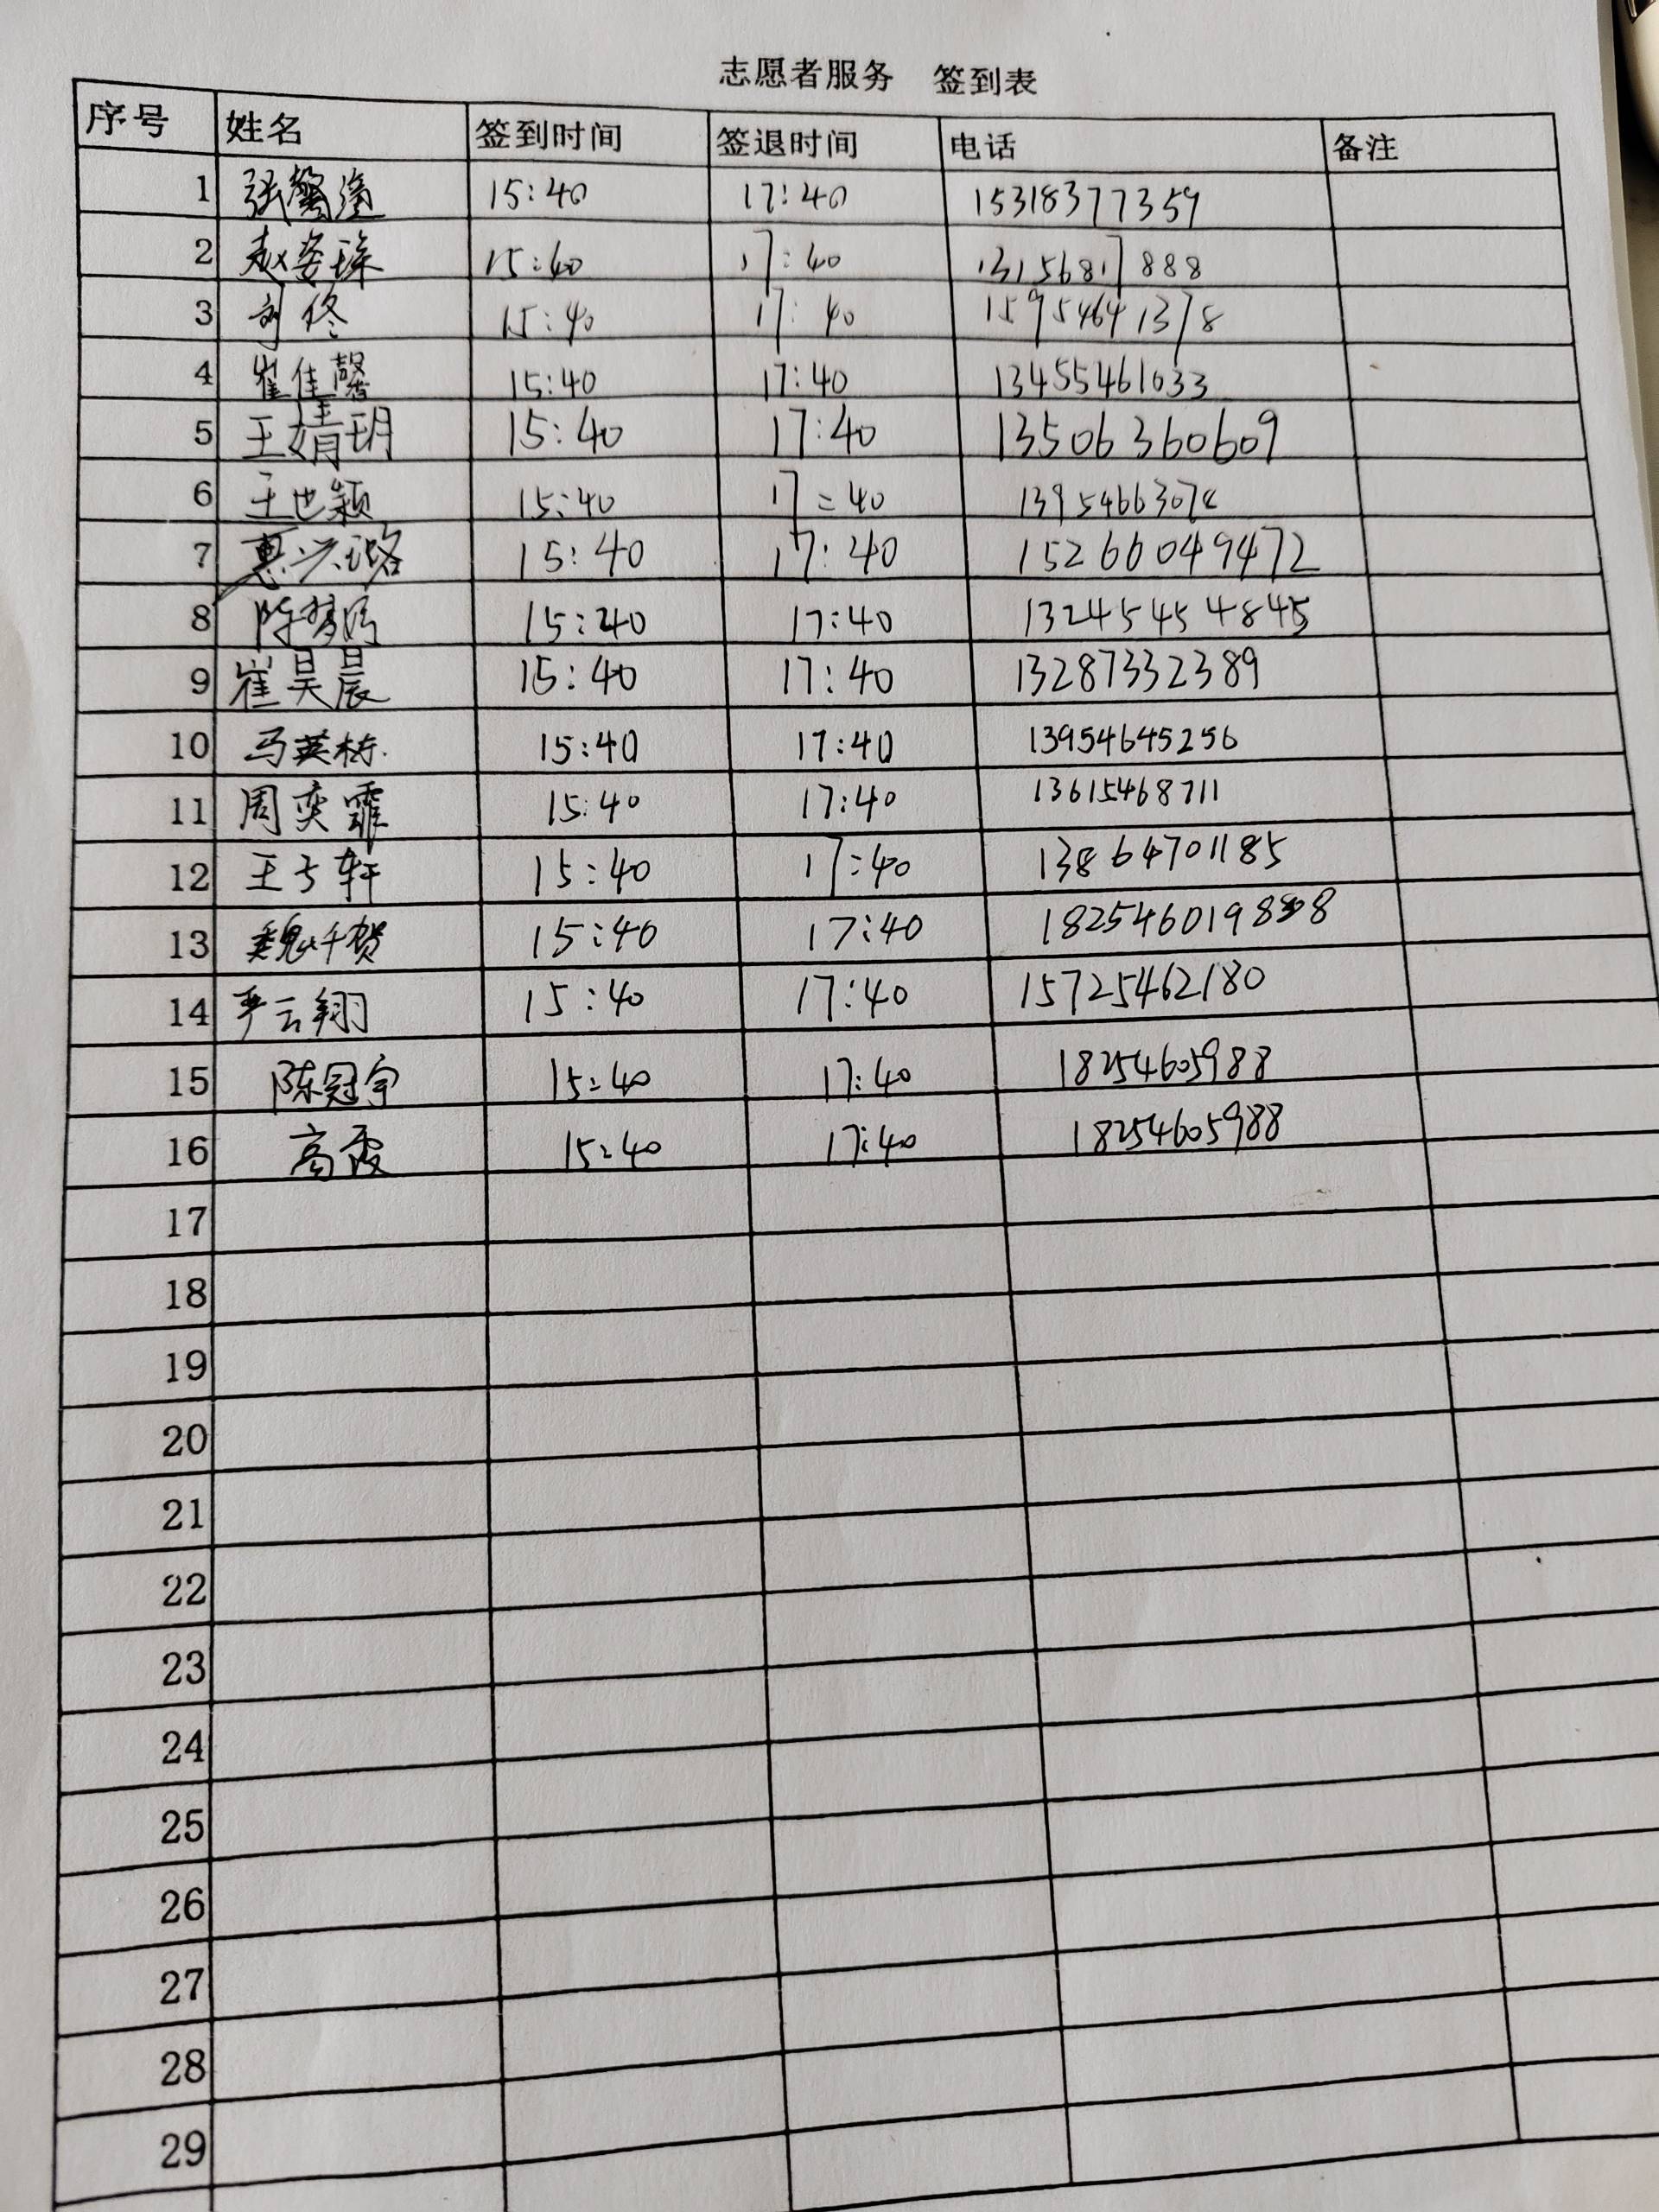 志愿者服务 签到表
序号 姓名 签到时间 签退时间 电话 备注
1 15:40 17:40 15318377359
2 赵姿臻 15:40 17:40 13156817888
3 刘佟 15:40 17:40 15954641378
4 崔佳馨 15:40 17:40 13455461033
5 王婧玥 15:40 17:40 13506360609
6 王也颖 15:40 17:40
7 惠兴璐 15:40 17:40 15266049472
8 15:40 17:40 13245454845
9 崔昊晨 15:40 17:40 13287332389
10 马英栋 15:40 17:40 13954645256
11 周奕霏 15:40 17:40 13615468711
12 王子轩 15:40 17:40 13864701185
13 15:40 17:40
14 严云翔 15:40 17:40 15725462180
15 陈冠宇 15:40 17:40 18254605988
16 高霞 15:40 17:40 18254605988
17
18
19
20
21
22
23
24
25
26
27
28
29